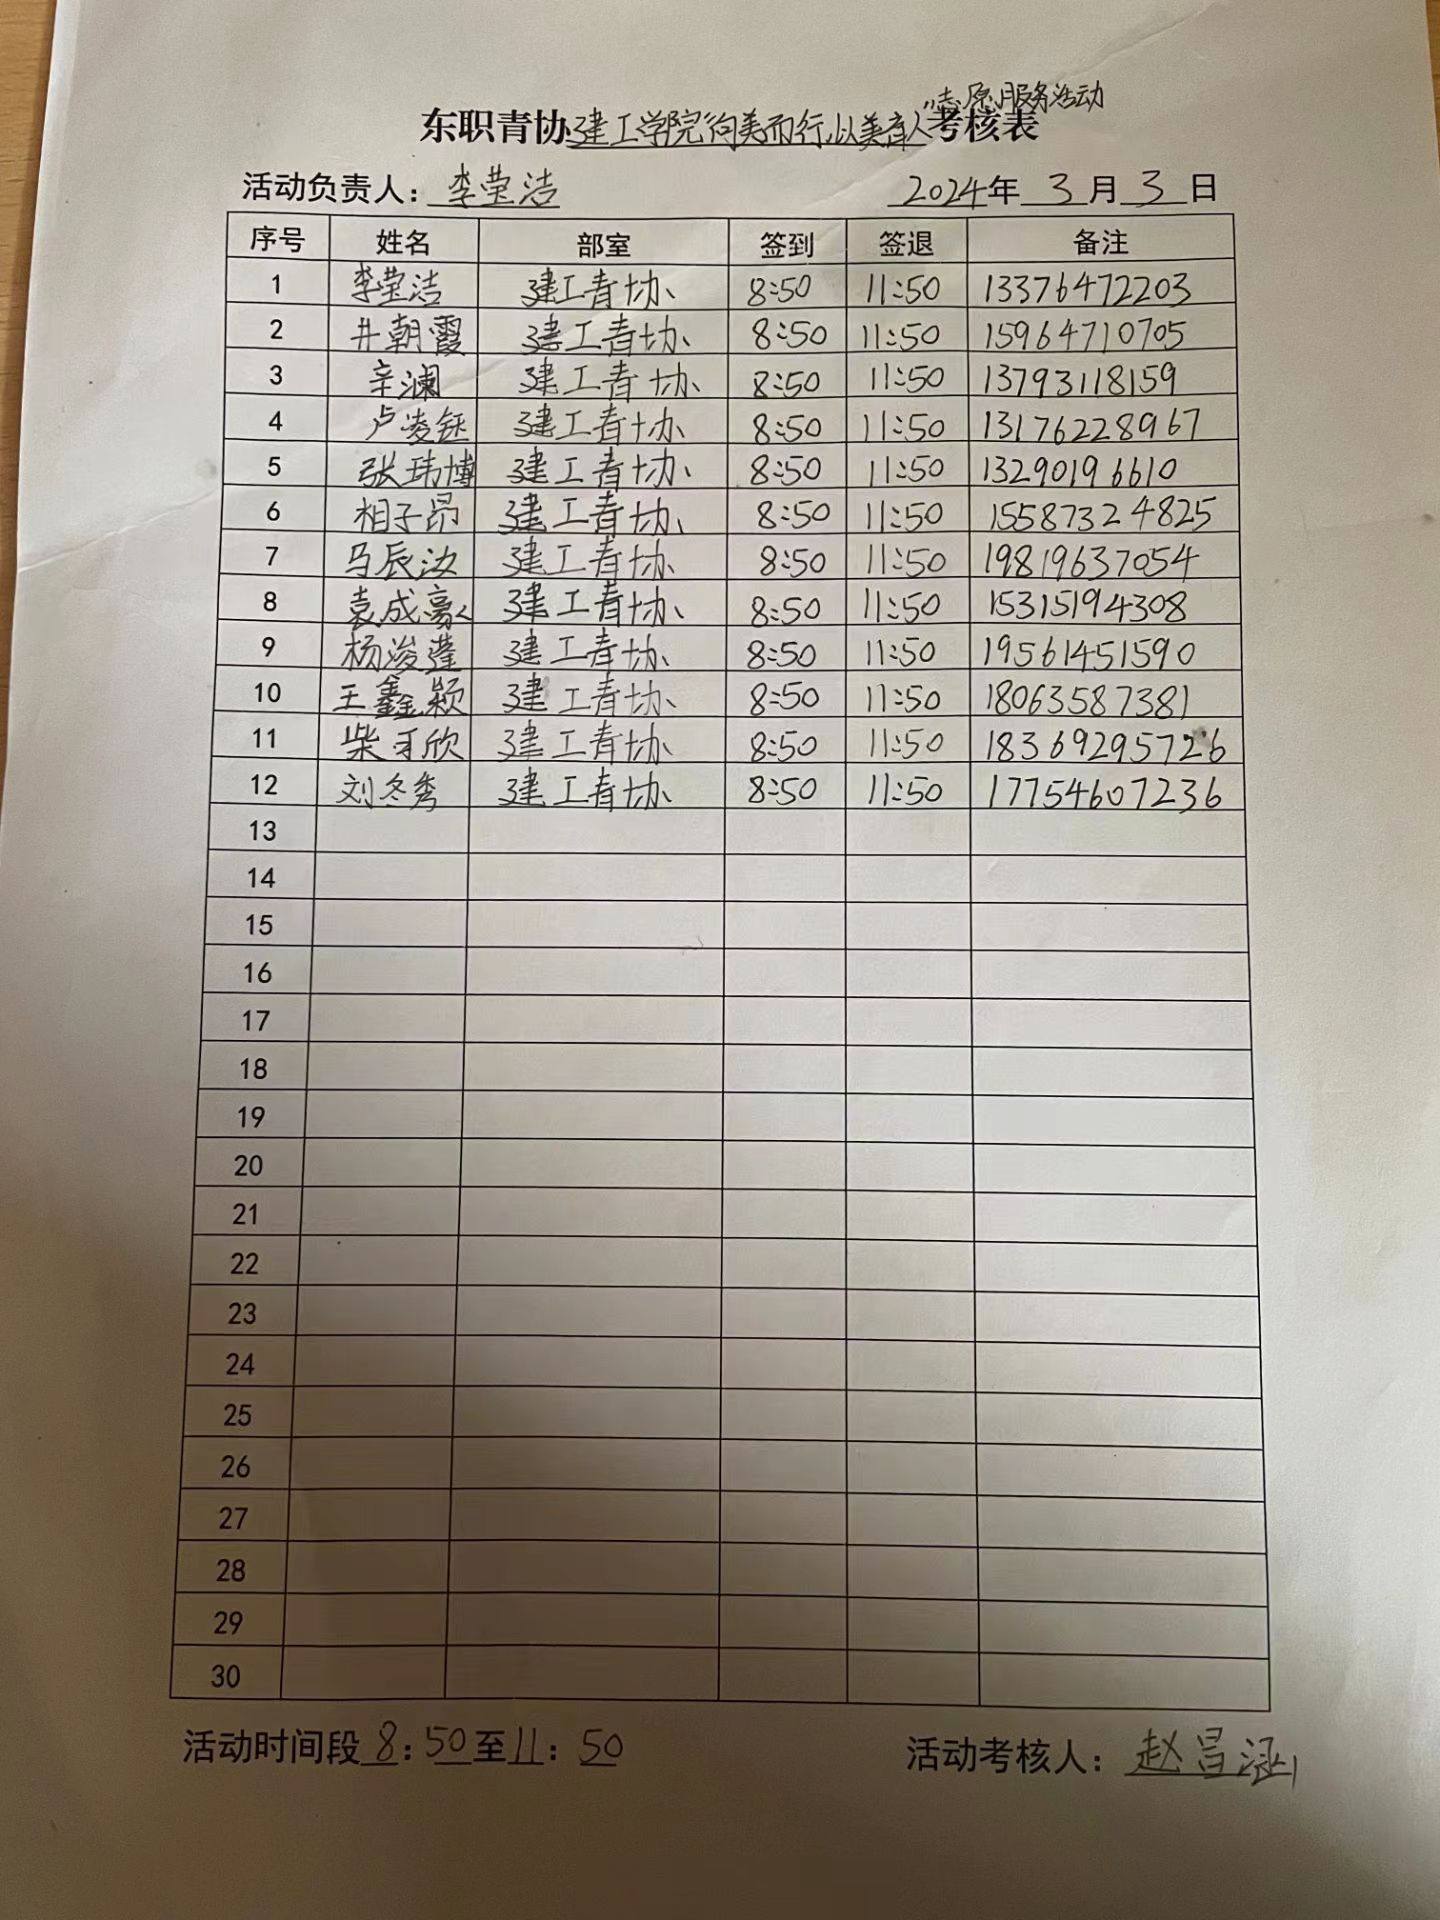 志愿服务活动
东职青协建工学院“向美而行,以美育人”考核表
活动负责人：李莹洁 2024年3月3日
序号 姓名 部室 签到 签退 备注
1 李莹洁 建工青协 8:50 11:50 13376472203
2 井朝霞 建工青协 8:50 11:50 15964710705
3 辛澜 建工青协 8:50 11:50 13793118159
4 卢凌钰 建工青协 8:50 11:50 13176228967
5 张玮博 建工青协 8:50 11:50 13290196610
6 相子昂 建工青协 8:50 11:50 15587324825
7 马辰汝 建工青协 8:50 11:50 19819637054
8 袁成豪 建工青协 8:50 11:50 15315194308
9 杨浚莹 建工青协 8:50 11:50 19561451590
10 王鑫颖 建工青协 8:50 11:50 18063587381
11 柴可欣 建工青协 8:50 11:50 18369295726
12 刘冬秀 建工青协 8:50 11:50 17754607236
13
14
15
16
17
18
19
20
21
22
23
24
25
26
27
28
29
30
活动时间段8:50至11:50 活动考核人：赵昌涵